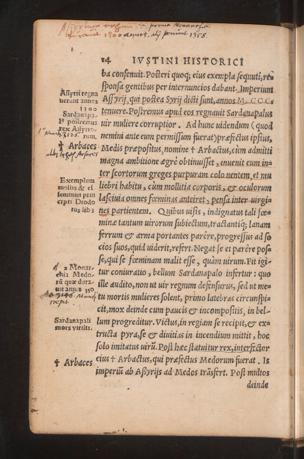 14 IVSTINI HISTORICI
ba consenuit. Posteri quoq; eius exempla sequuti, re-
sponsa gentibus per internuncios dabant. Imperium
Assyrij, qui postea Syrij dicti sunt, annos M.CCC.
tenuere. Postremus apud eos regnauit Sardanapalus
uir muliere corruptior. Ad hunc uidendum (quod
nemini ante eum permissum fuerat) præfectus ipsius,
Medis præpositus, nomine † Arbactus, cùm admitti
magna ambitione ægrè obtinuisset, inuenit eum in-
ter scortorum greges purpuram colo nentem, et mu
liebri habitu, cum mollitia corporis, & oculorum
lasciuia omnes fœminas anteiret, pensa inter uirgi-
nes partientem. Quibus uisis, indignatus tali fœ-
minæ tantum uirorum subiectum, tractantiq; lanam
ferrum & arma portantes parêre, progressus ad so
cios suos, quid uiderit, refert. Negat se ei parêre pos
se, qui se fœminam malit esse, quàm uirum. Fit igi
tur coniuratio, bellum Sardanapalo infertur: quo
ille audito, non ut uir regnum defensurus, sed ut me-
tu mortis mulieres solent, primo latebras circunspi
cit, mox deinde cum paucis & incompositis, in bel-
lum progreditur. Victus, in regiam se recipit, & ex-
tructa pyra, se & diuitias in incendium mittit, hoc
solo imitatus uirū. Post hæc statuitur rex, interfector
eius † Arbactus, qui præfectus Medorum fuerat. Is
imperiū ab Assyrijs ad Medos trāsfert. Post multos
deinde
Assyrij regna
uerunt annos
1300
Sardanapa-
lus postremus
rex Assyrio-
rum.
† Arbaces
Exemplum
† Arbaces
Sardanapali
mors uirilis.